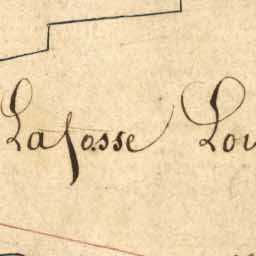 Lafosse Lou